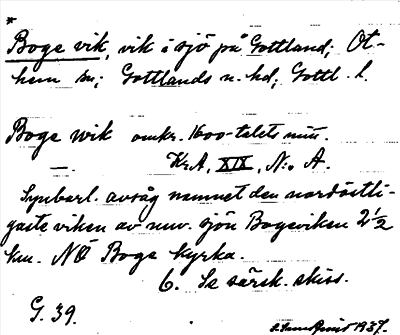 *
Boge vik, vik i sjö på Gottland; Ot-
hem sn; Gottlands n. hd; Gottl. l.
Boge wik omkr. 1600-talets mitt.
— KrA, XIX, N:o A.
Synbarl. avsåg namnet den nordöstli-
gaste viken av nuv. sjön Bogeviken 2 1/2
km. NÖ Boge kyrka.
6. Se särsk. skiss.
G. 39.
1937.